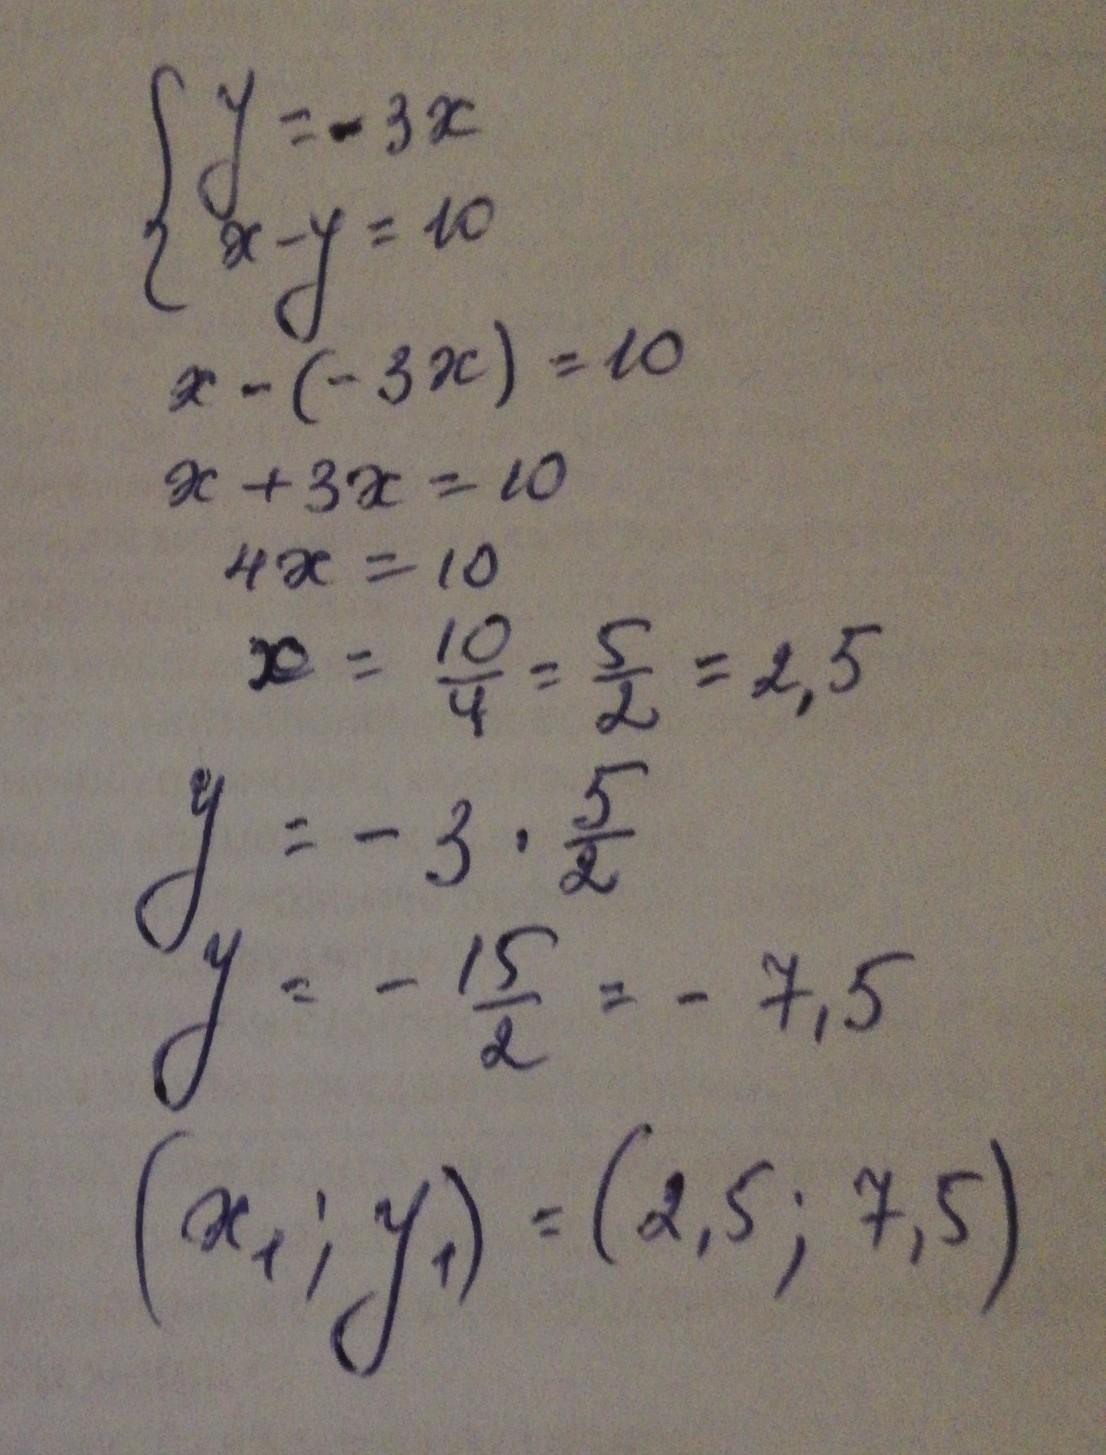 { y = - 3x
x - y = 10
x - (- 3x) = 10
x + 3x = 10
4x = 10
x = 10/4 = 5/2 = 2,5
y = - 3 · 5/2
y = - 15/2 = - 7,5
(x₁; y₁) = (2,5; 7,5)